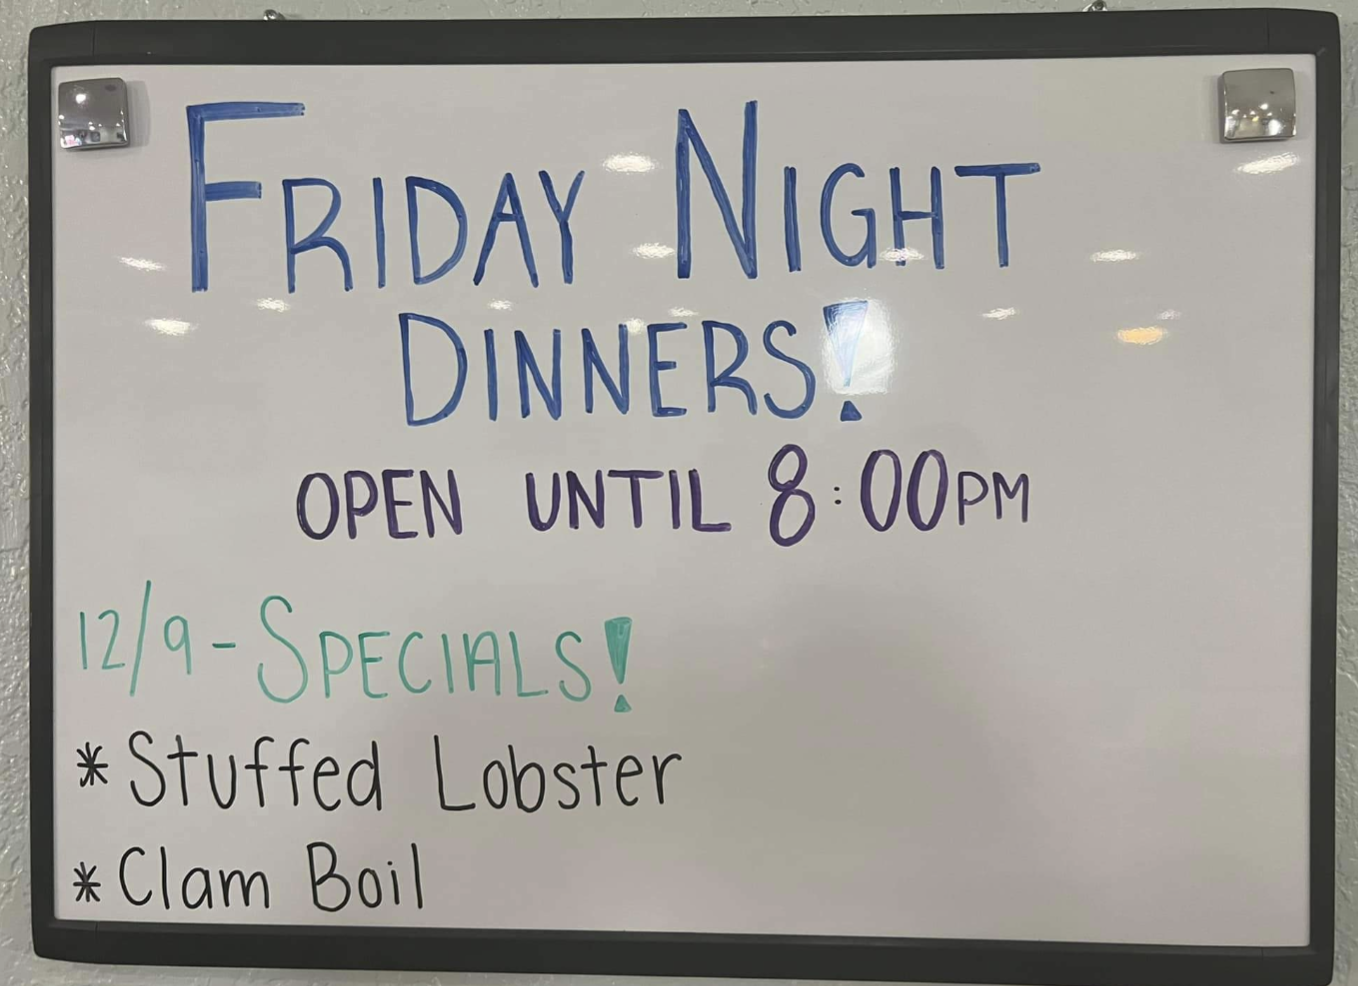 FRIDAY NIGHT
DINNERS!
OPEN UNTIL 8:00PM
12/9-SPECIALS!
* Stuffed Lobster
* Clam Boil